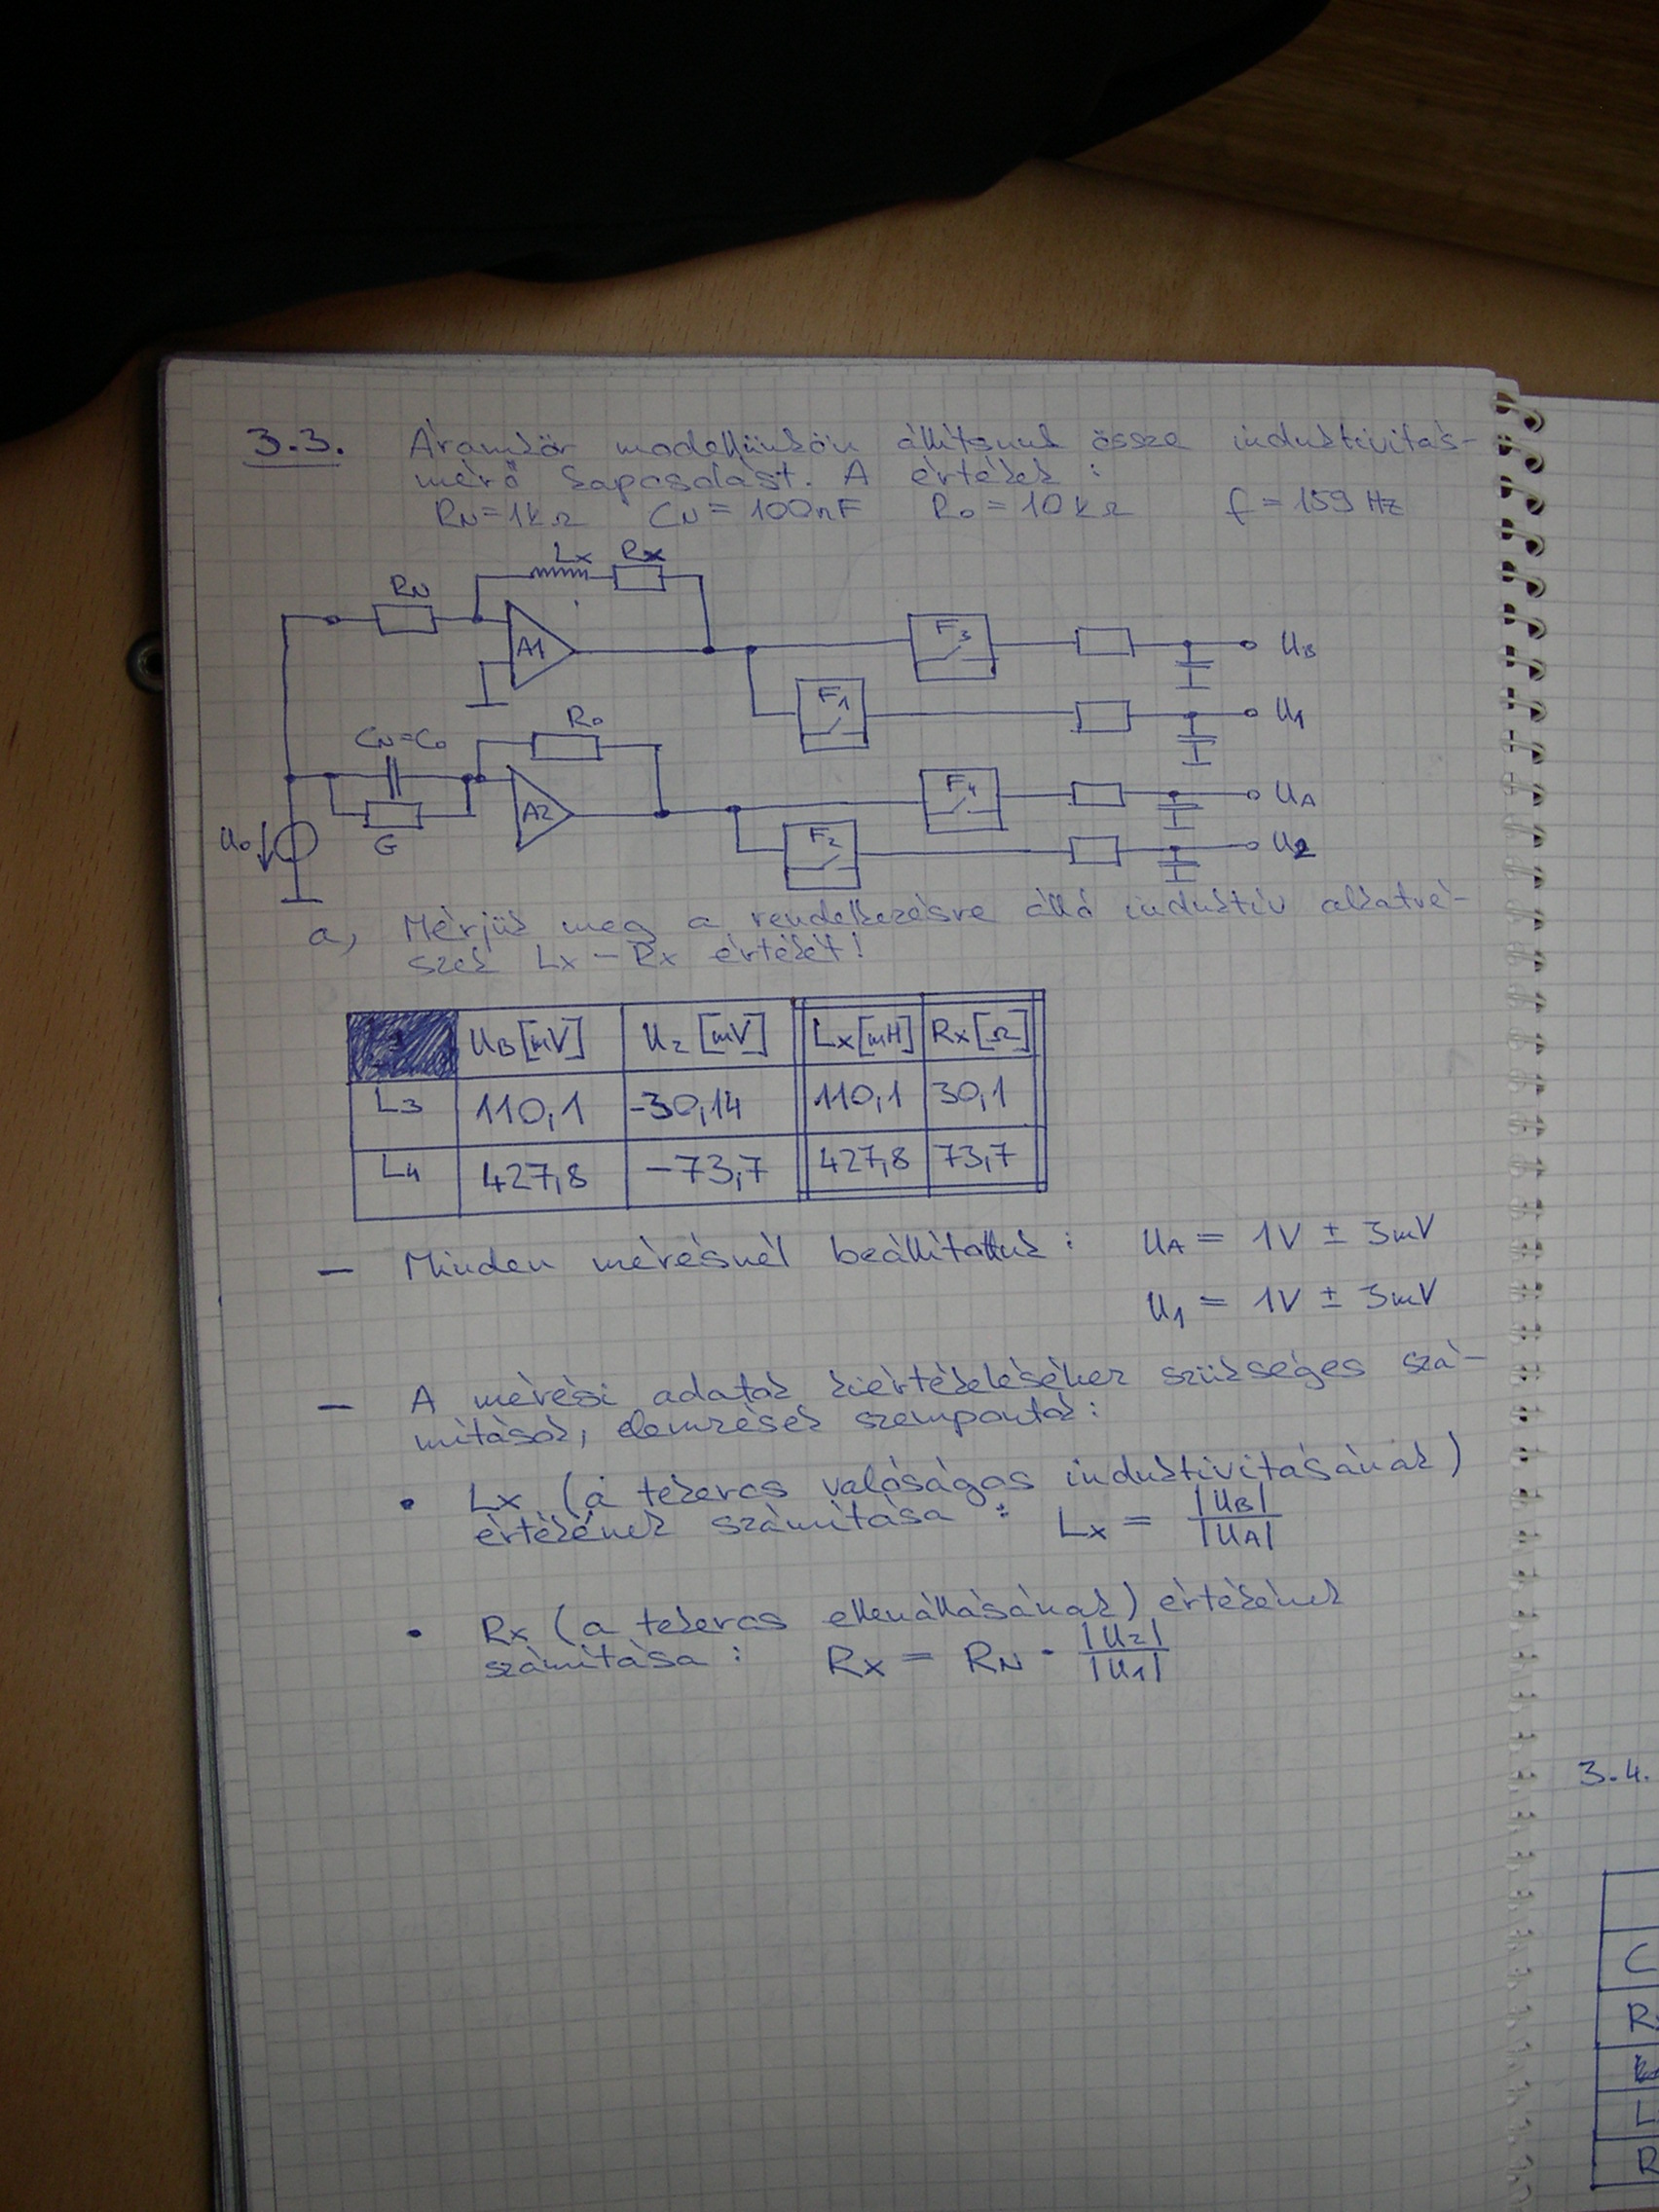 3.3. Áramkör modellünkön állítsunk össze induktivitás-
mérő kapcsolást. A értékek :
RN=1kΩ CN=100nF R0=10kΩ f=159 Hz
Lx Rx
RN
A1
F3
UB
F1
U1
R0
CN=C0
A2
F4
UA
F2
U2
U0
G
a, Mérjük meg a rendelkezésre álló induktív alkatré-
szek Lx-Rx értékét!
UB[mV] U2 [mV] Lx[mH] Rx[Ω]
L3 110,1 -30,14 110,1 30,1
L4 427,8 -73,7 427,8 73,7
- Minden mérésnél beállítottuk : UA = 1V ± 3mV
U1 = 1V ± 3mV
- A mérési adatok kiértékeléséhez szükséges szá-
mítások, elemzések szempontok :
• Lx (a tekercs valóságos induktivitásának)
értékének számítása : Lx = |UB| / |UA|
• Rx (a tekercs ellenállásának) értékének
számítása : Rx = RN · |U2| / |U1|
3.4.
C
R
L
R